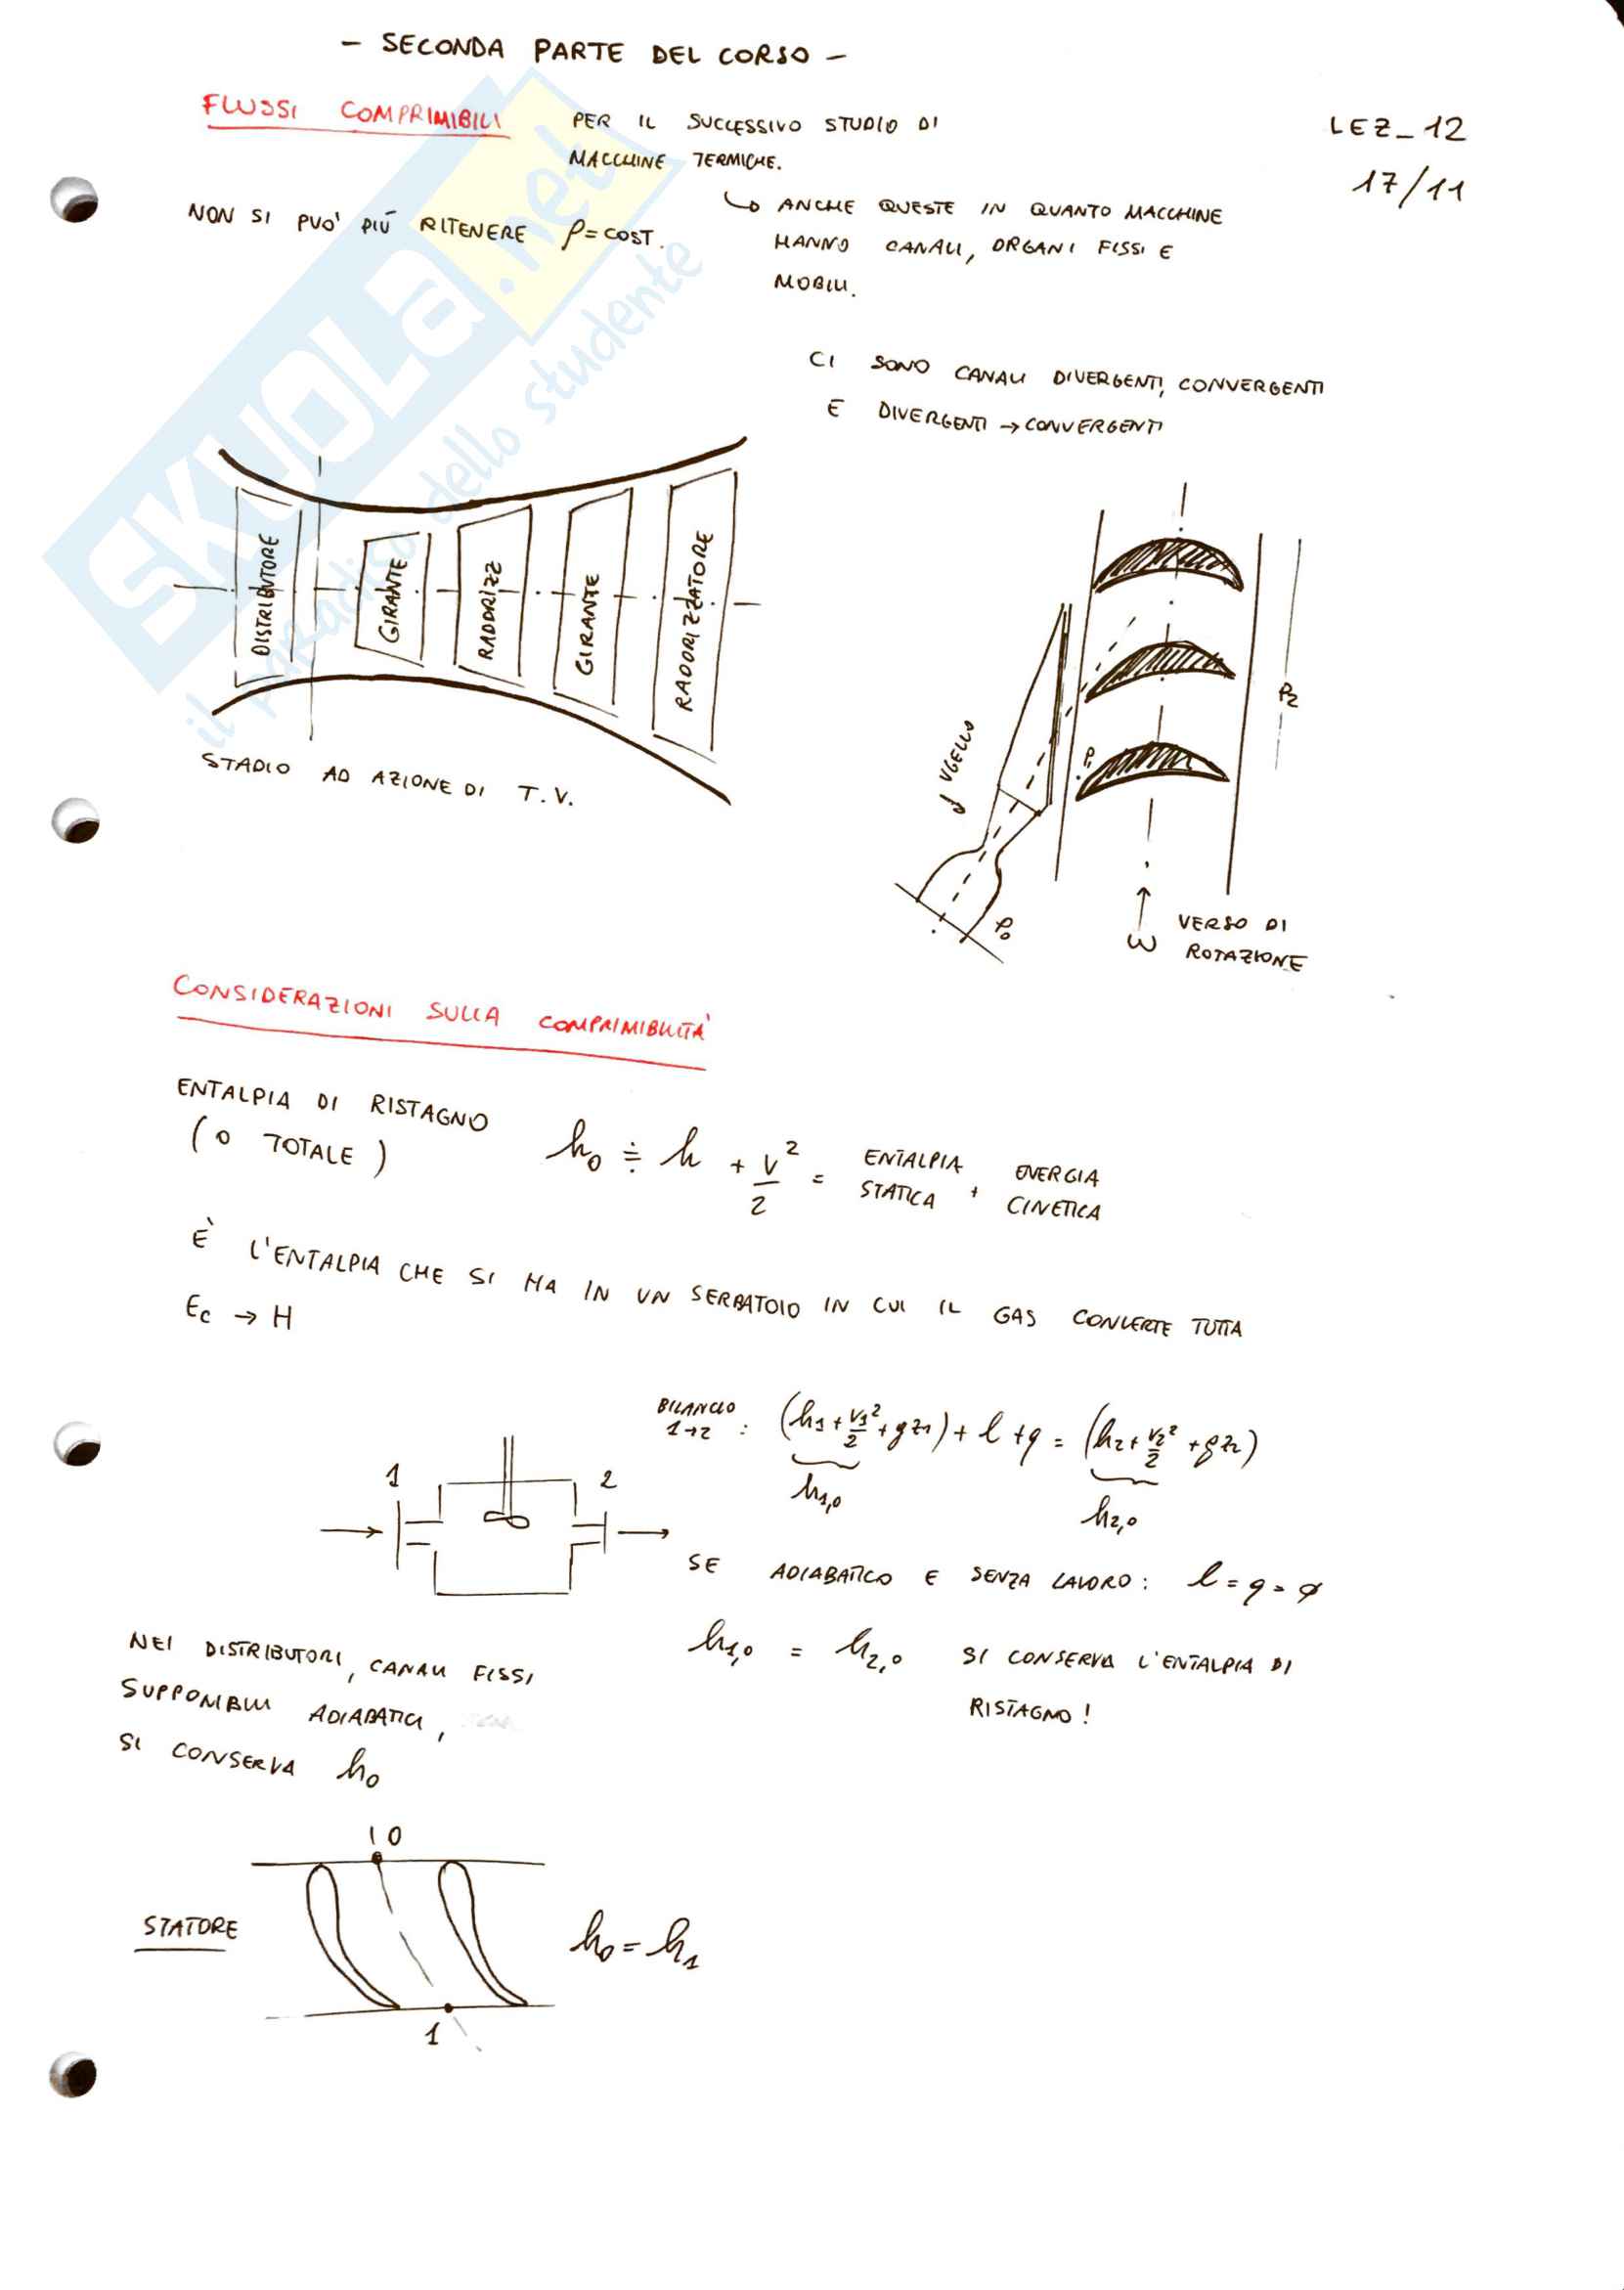 - SECONDA PARTE DEL CORSO -
FLUSSI COMPRIMIBILI
PER IL SUCCESSIVO STUDIO DI
MACCHINE TERMICHE.
LEZ_12
17/11
NON SI PUO' PIÙ RITENERE ρ=COST.
↳ ANCHE QUESTE IN QUANTO MACCHINE
HANNO CANALI, ORGANI FISSI E
MOBILI.
CI SONO CANALI DIVERGENTI, CONVERGENTI
E DIVERGENTI → CONVERGENTI
DISTRIBUTORE
GIRANTE
RADDRIZZ
GIRANTE
RADDRIZZATORE
STADIO AD AZIONE DI T.V.
UGELLO
P₀
P₁
P₂
ω
VERSO DI
ROTAZIONE
CONSIDERAZIONI SULLA COMPRIMIBILITÀ
ENTALPIA DI RISTAGNO
(O TOTALE)
h₀ ≑ h + v²/2 = ENTALPIA STATICA + ENERGIA CINETICA
È L'ENTALPIA CHE SI HA IN UN SERBATOIO IN CUI IL GAS CONVERTE TUTTA
Ec → H
1
2
BILANCIO
1→2 : (h₁ + v₁²/2 + gz₁) + l + q = (h₂ + v₂²/2 + gz₂)
h₁,₀
h₂,₀
SE ADIABATICO E SENZA LAVORO: l = q = ø
h₁,₀ = h₂,₀ SI CONSERVA L'ENTALPIA DI
RISTAGNO!
NEI DISTRIBUTORI, CANALI FISSI
SUPPONIBILI ADIABATICI,
SI CONSERVA h₀
STATORE
0
1
h₀ = h₁
SKUOLA.net
il paradiso dello studente